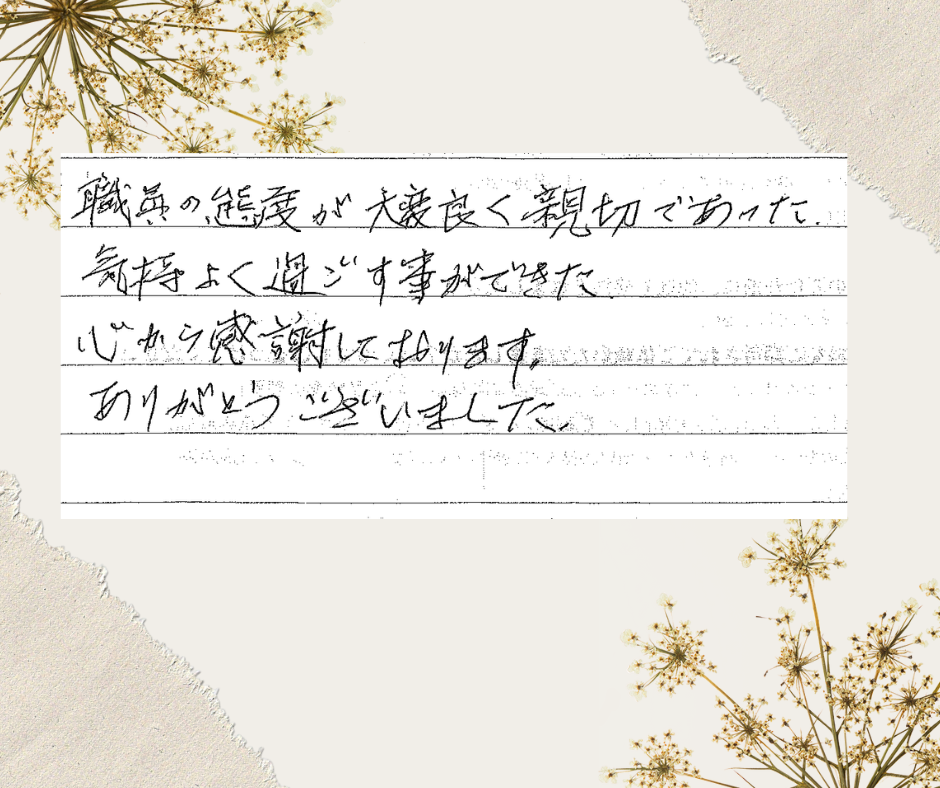 職員の態度が大変良く親切であった.
気持よく過ごす事ができた.
心から感謝しております。
ありがとうございました。